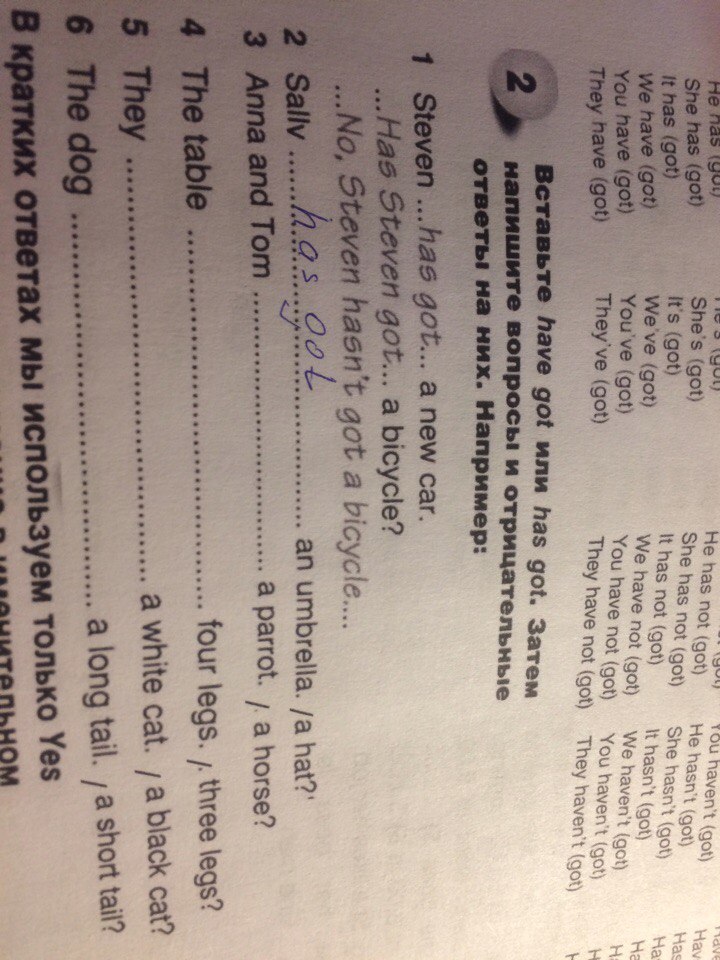 She has (got)
It has (got)
We have (got)
You have (got)
They have (got)
She's (got)
It's (got)
We've (got)
You've (got)
They've (got)
He has not (got)
She has not (got)
It has not (got)
We have not (got)
You have not (got)
They have not (got)
You haven't (got)
He hasn't (got)
She hasn't (got)
It hasn't (got)
We haven't (got)
You haven't (got)
They haven't (got)
2 Вставьте have got или has got. Затем
напишите вопросы и отрицательные
ответы на них. Например:
1 Steven ...has got... a new car.
...Has Steven got... a bicycle?
...No, Steven hasn't got a bicycle....
2 Sally ......has got...... an umbrella. /a hat?
3 Anna and Tom ............ a parrot. / a horse?
4 The table ............ four legs. / three legs?
5 They ............ a white cat. / a black cat?
6 The dog ............ a long tail. / a short tail?
В кратких ответах мы используем только Yes